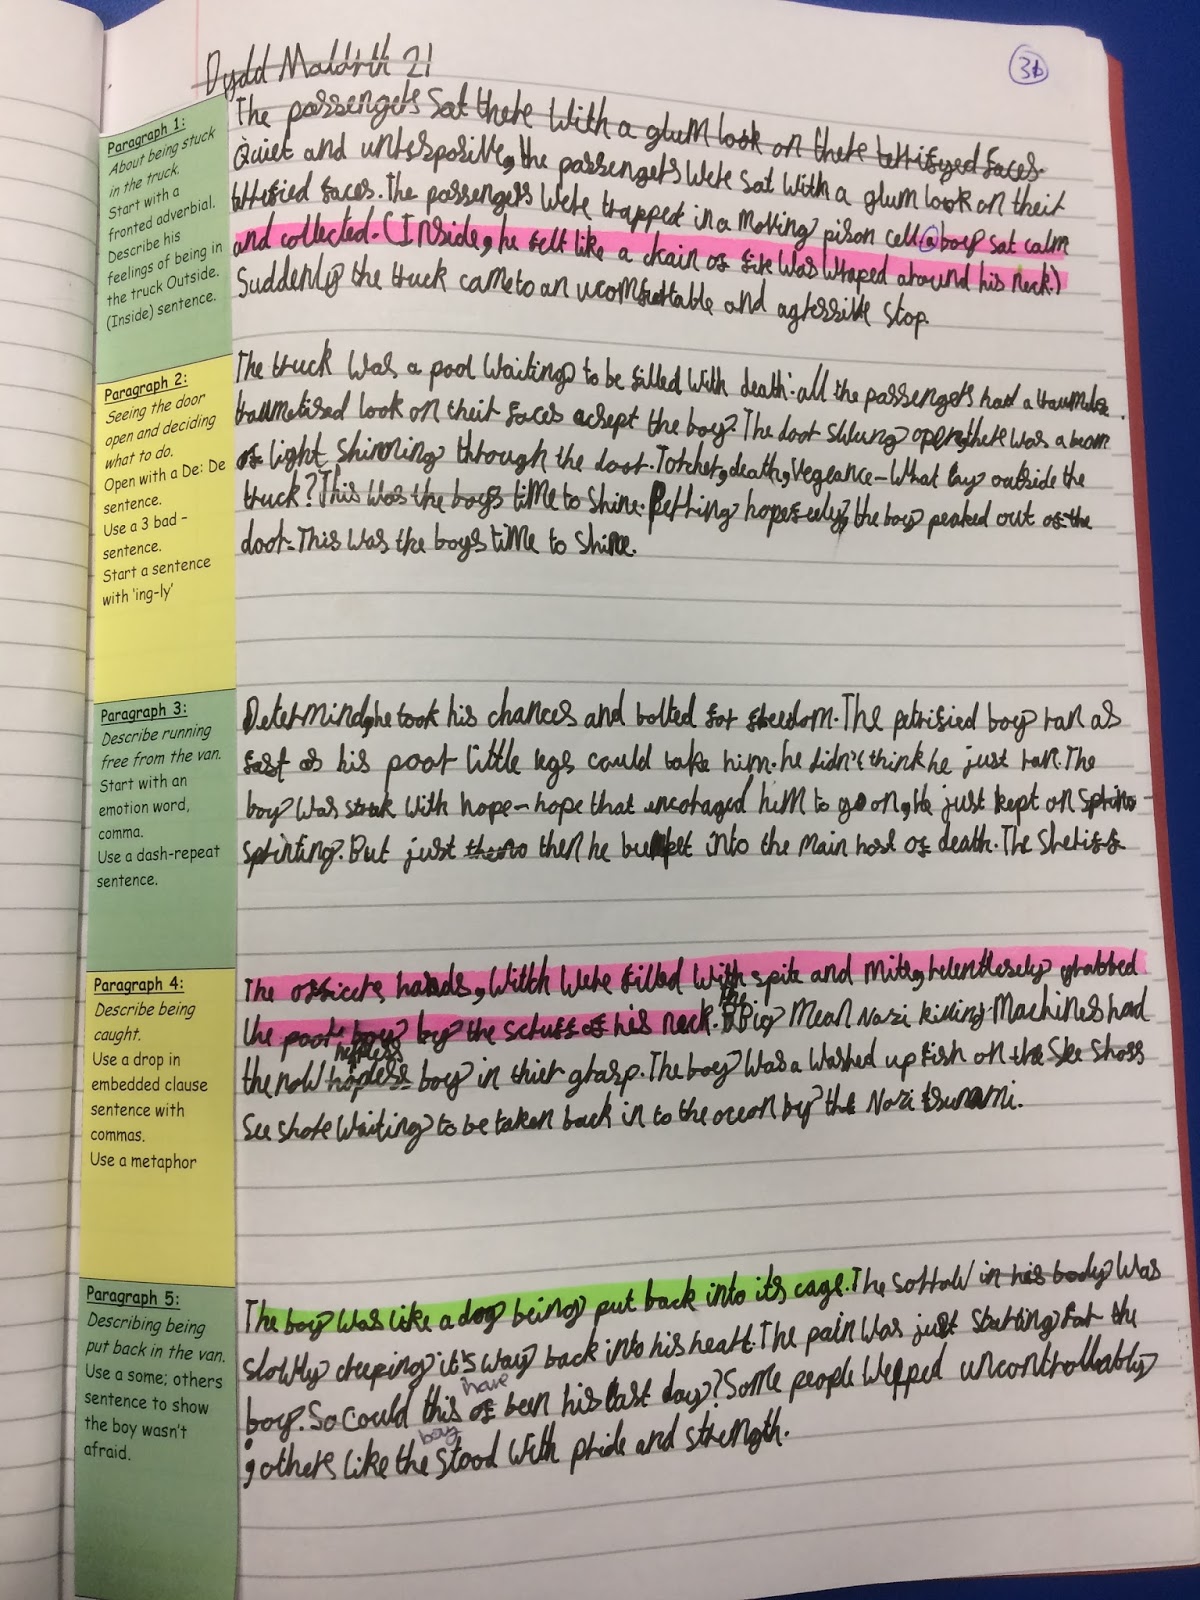 Dydd Maldrth 21
3b
Paragraph 1:
About being stuck
in the truck.
Start with a
fronted adverbial.
Describe his
feelings of being in
the truck Outside.
(Inside) sentence.
The passengers sat there with a glum look on there terrifyed faces.
Quiet and unresposive, the passengers were sat with a glum look on their
terrified faces. The passengers were trapped in a moving pison cell a boy sat calm
and collected. (Inside, he felt like a chain of fire was wraped around his neck.)
Suddenly the truck came to an ucomfortable and agressive stop.
Paragraph 2:
Seeing the door
open and deciding
what to do.
Open with a De: De
sentence.
Use a 3 bad –
sentence.
Start a sentence
with 'ing-ly'
The truck was a pool waiting to be filled with death: all the passengers had a
traumatised look on their faces acsept the boy. The door swung open, there was a beam
of light shinning through the door. Torcher, death, vegeance – what lay outside the
truck? This was the boys time to shine. hopefuly, the boy peaked out of the
door. This was the boys time to shine.
Paragraph 3:
Describe running
free from the van.
Start with an
emotion word,
comma.
Use a dash-repeat
sentence.
Determind, he took his chances and bolted for freedom. The petrified boy ran as
fast as his poor little legs could take him. he didn't think he just ran. The
boy was with hope – hope that encoraged him to go on, he just kept on
sprinting. But just then he into the main host of death. The sheriff
Paragraph 4:
Describe being
caught.
Use a drop in
embedded clause
sentence with
commas.
Use a metaphor
The officers hands, witch were filled with spite and misery, relentlesely grabbed
the poor boy by the scruff of his neck. The Big mean nazi killing machines had
the now helpless hopless boy in thier grasp. The boy was a washed up fish on the
see shore waiting to be taken back in to the ocean by the Nazi tsunami.
Paragraph 5:
Describing being
put back in the van.
Use a some; others
sentence to show
the boy wasn't
afraid.
The boy was like a dog being put back into its cage. The sorrow in his body was
slowly creeping it's way back into his heart. The pain was just starting for the
boy. So could this of have been his last day? Some people wepped uncontrollably
; others like the boy stood with pride and strength.